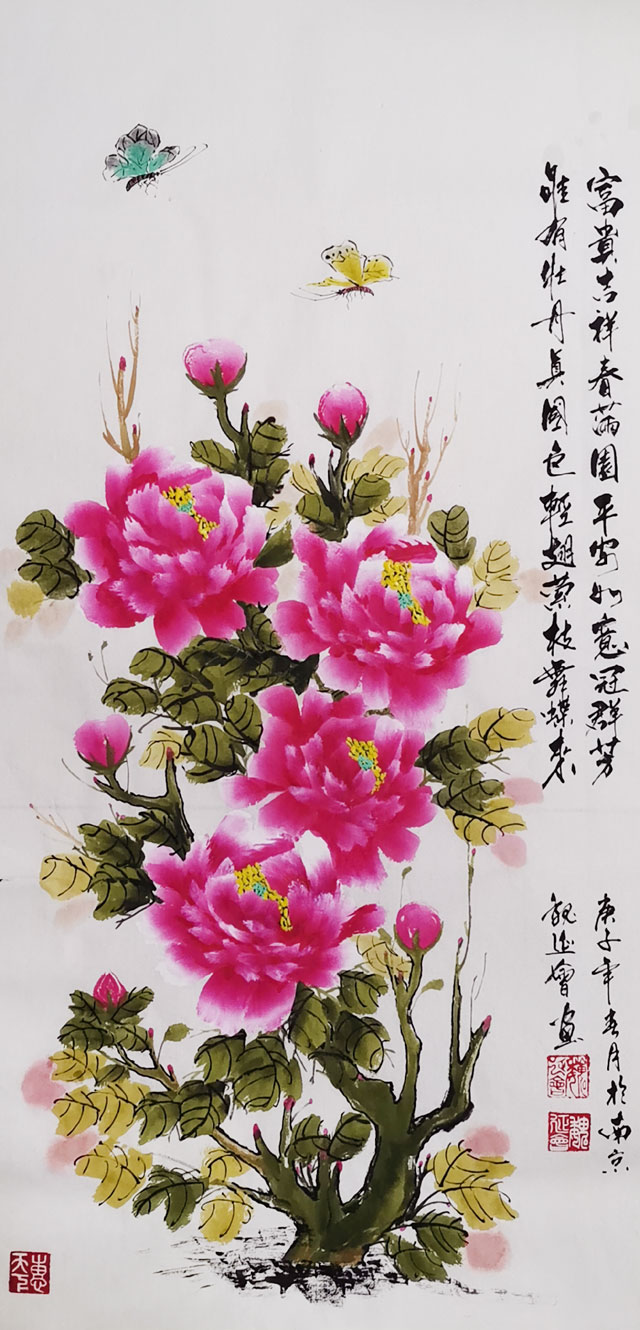 富貴吉祥春滿園平安如意冠群芳
唯有牡丹真國色輕翅枝舞蝶來
庚子年春月於南京
魏延會畫
魏延會